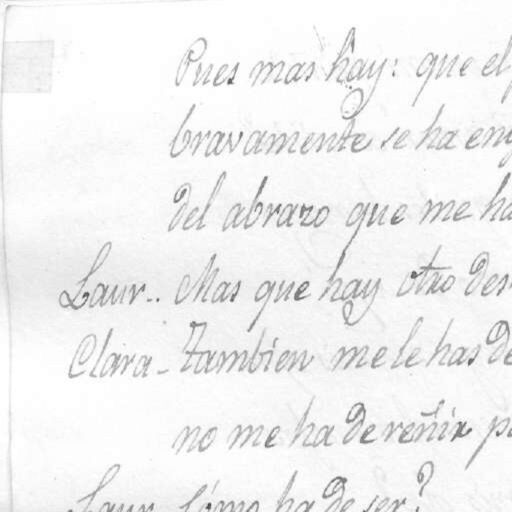 Pues mas hay: que el
bravamente se ha
del abrazo que me
Laur.. Mas que hay otro
Clara - Tambien me le has
no me ha de reñir
Laur Cómo ha de ser?